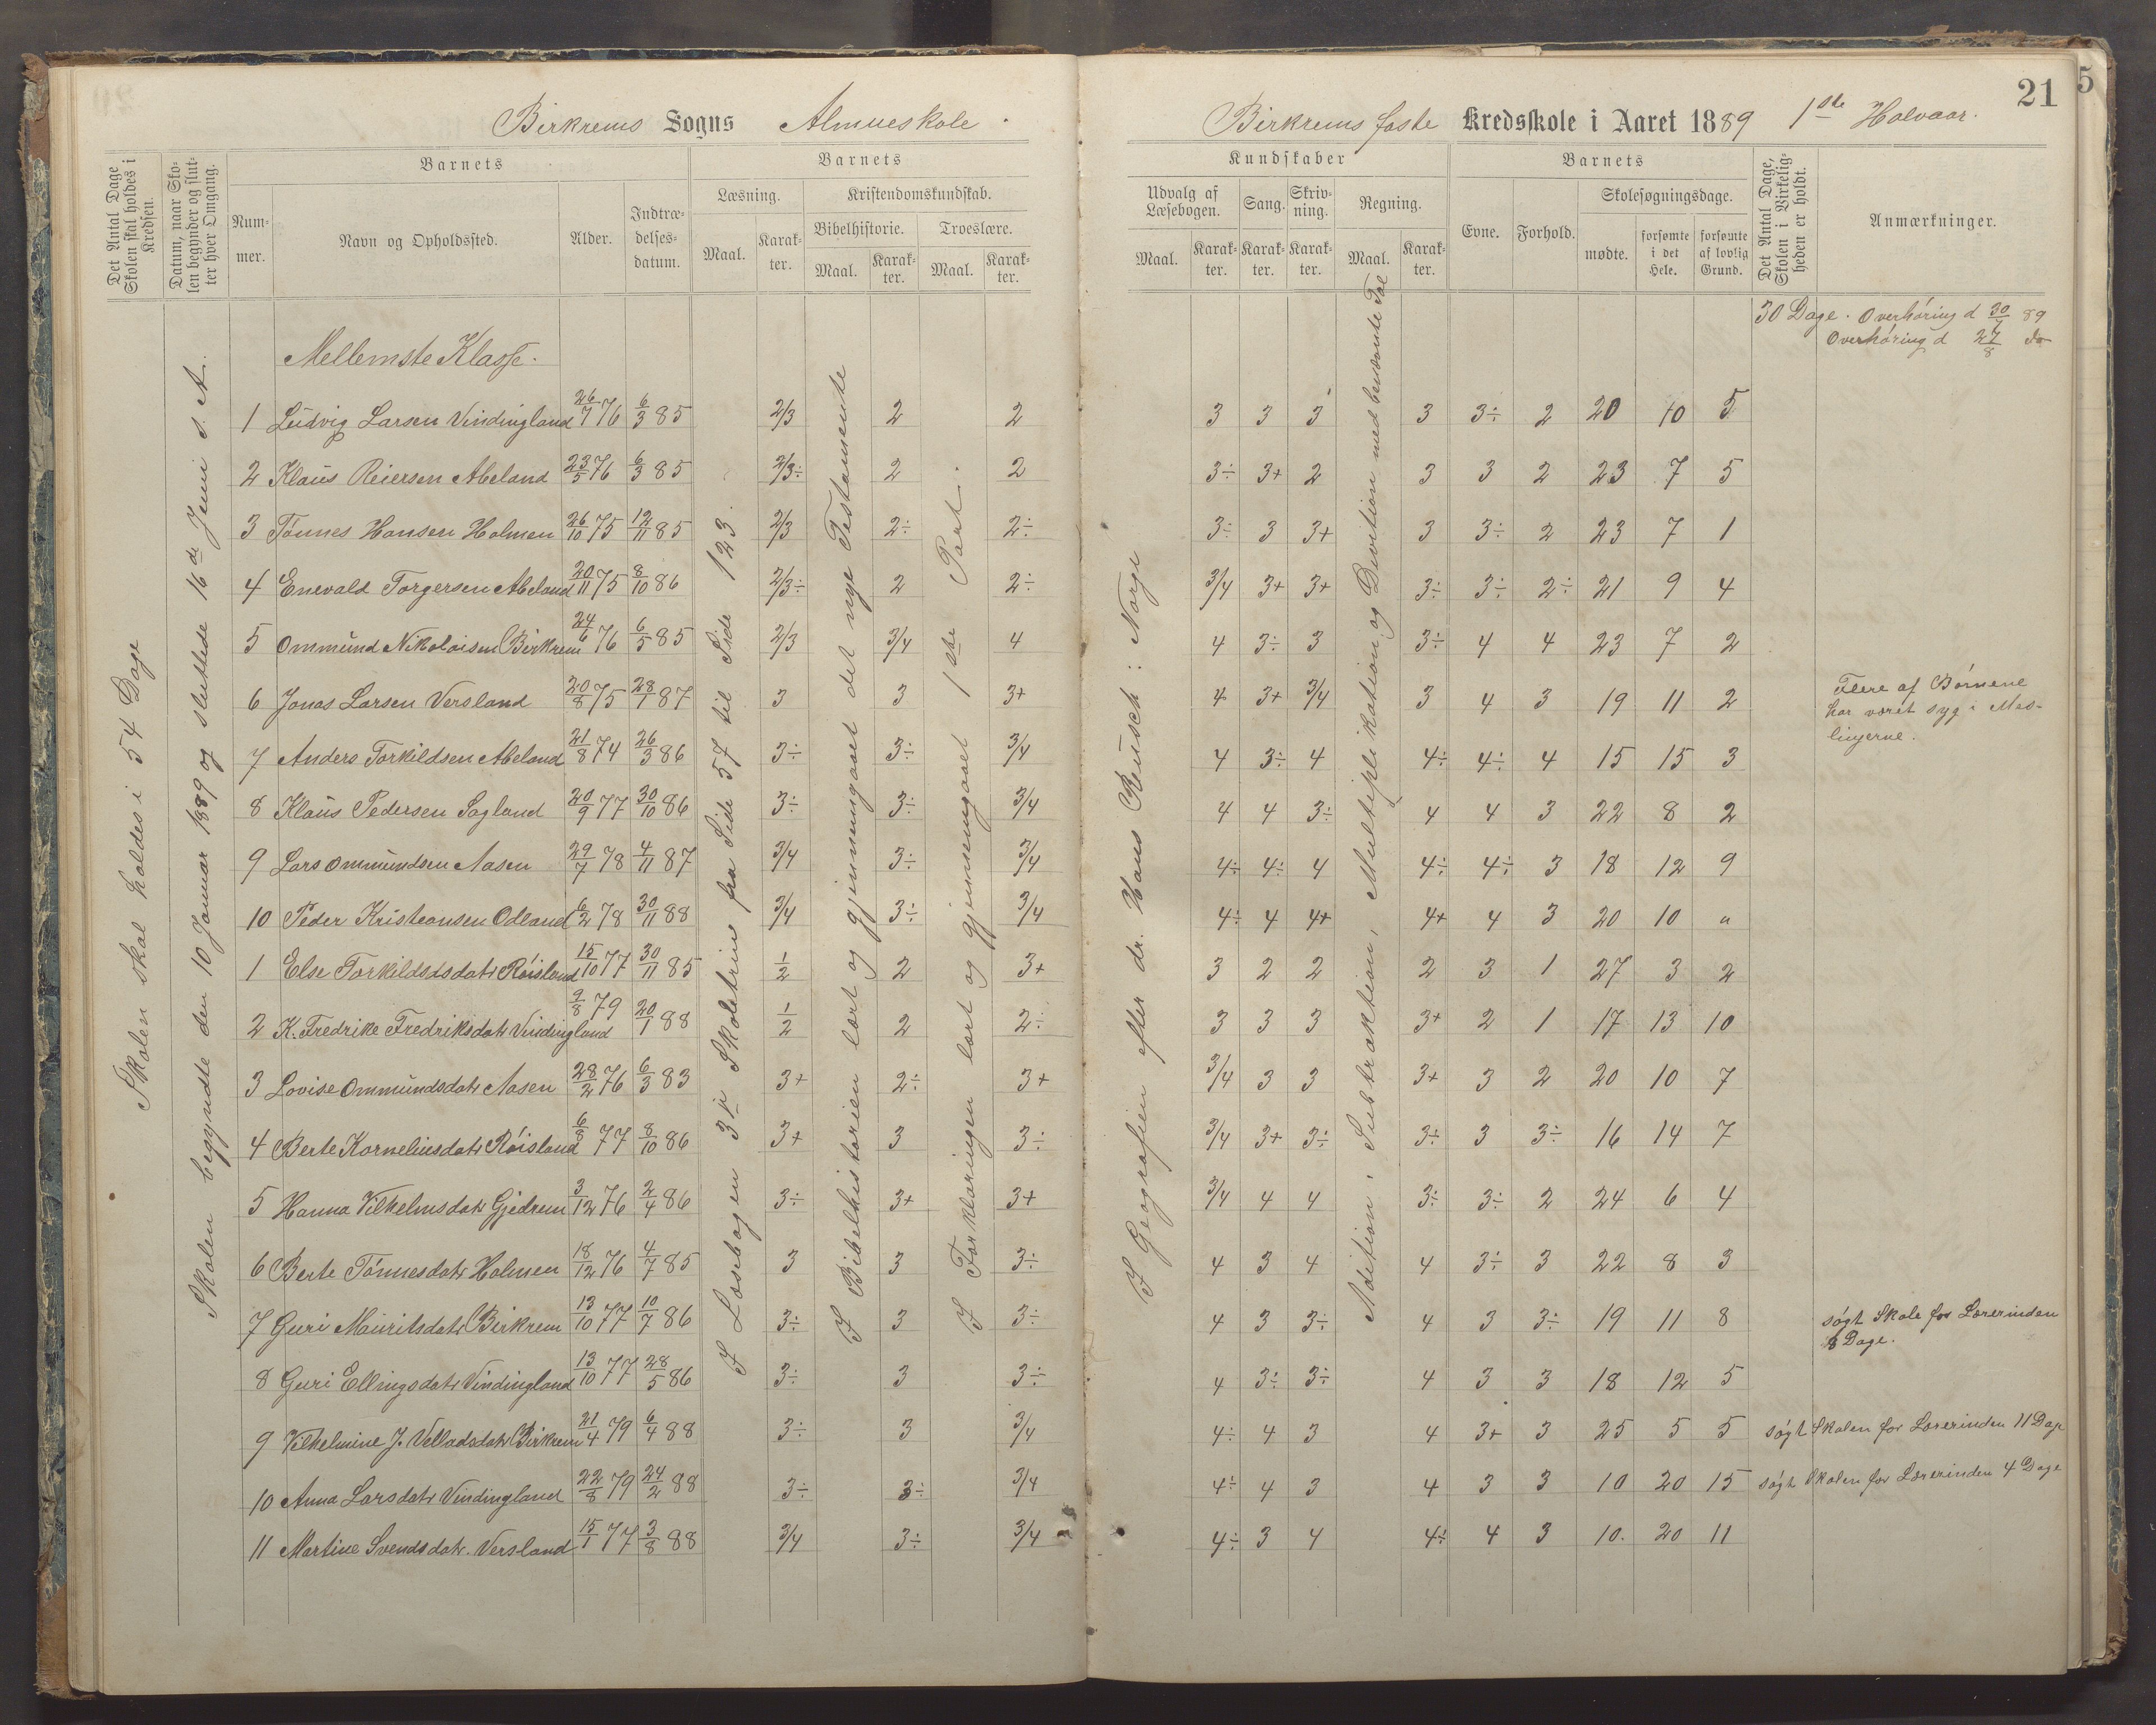 Birkrems Sogns Almueskole.
Det Antal Dage Skolen skal holdes i Kredsen.
Datum, naar Skolen begynder og slutter hver Omgang.
Barnets
Nummer.
Navn og Opholdssted.
Alder.
Indtrædelsesdatum.
Barnets
Læsning.
Maal.
Karakter.
Kristendomskundskab.
Bibelhistorie.
Maal.
Karakter.
Troeslære.
Maal.
Karakter.
Skolen skal holdes i 54 Dage
Skolen begyndte den 10 Januar 1889 og sluttede 16de Juni s. A.
I Læsebogen 3die Skoletrin fra Side 57 til Side 123.
I Bibelhistorien lært og gjennemgaaet det nye Testamente
I Forklaringen lært og gjennemgaaet 1ste Part.
Mellemste Klasse.
1 Ludvig Larsen Vindingland 26/7 76 6/3 85 2/3 2 2
2 Klaus Reiersen Abeland 23/5 76 6/3 85 2/3÷ 2 2
3 Tønnes Hansen Holmen 26/10 75 12/11 85 2/3 2÷ 2÷
4 Enevald Torgersen Abeland 20/11 75 8/10 86 2/3÷ 2 2÷
5 Ommund Nikolaisen Birkrem 24/6 76 6/5 85 2/3 3/4 4
6 Jonas Larsen Versland 20/8 75 28/1 87 3 3 3+
7 Anders Torkildsen Abeland 21/8 74 26/3 86 3÷ 3÷ 3/4
8 Klaus Pedersen Sagland 20/9 77 30/10 86 3÷ 3÷ 3/4
9 Lars Ommundsen Aasen 29/7 78 4/11 87 3/4 3÷ 3/4
10 Peder Kristeansen Odland 6/2 78 30/11 88 3/4 3÷ 3/4
1 Else Torkildsdatr Røisland 15/10 77 30/11 85 1/2 2 3+
2 K. Fredrike Fredriksdatr Vindingland 9/8 79 20/1 88 1/2 2 2÷
3 Lovise Ommundsdatr Aasen 28/2 76 6/3 83 3+ 2÷ 3+
4 Berte Korneliusdatr Røisland 6/8 77 8/10 86 3+ 3 3÷
5 Hanna Vilhelmsdatr Gjedrem 3/12 76 2/4 86 3÷ 3+ 3+
6 Berte Tønnesdatr Holmen 18/12 76 4/7 85 3 3 3÷
7 Guri Mauritsdatr Birkrem 13/10 77 10/7 86 3÷ 3 3÷
8 Guri Ellingsdatr Vindingland 13/10 77 28/5 86 3÷ 3 3÷
9 Vilhelmine J. Velladsdatr Birkrem 21/4 79 6/4 88 3÷ 3 3/4
10 Anna Larsdatr Vindingland 22/8 79 24/2 88 3÷ 3÷ 3/4
11 Martine Svendsdatr. Versland 15/1 77 3/8 88 3/4 3÷ 3/4
21
5
Birkrems faste Kredsskole i Aaret 1889 1ste Halvaar.
Kundskaber
Udvalg af Læsebogen.
Maal.
Karakter.
Sang.
Karakter.
Skrivning.
Karakter.
Regning.
Maal.
Karakter.
Barnets
Evne.
Forhold.
Skolesøgningsdage.
mødte.
forsømte i det Hele.
forsømte af lovlig Grund.
Det Antal Dage, Skolen i Virkeligheden er holdt.
Anmærkninger.
I Geografien efter dr. Hans Reusch: Norge
Adition, Subtraktion, Multiplikation og Devition med benævnte Tal
30 Dage. Overhøring d 30/4 89
Overhøring d 27/8 do
3 3 3 3 3÷ 2 20 10 5
3÷ 3+ 2 3 3 2 23 7 5
3÷ 3 3+ 3 3÷ 2 23 7 1
3/4 3+ 3+ 3÷ 3÷ 2÷ 21 9 4
4 3÷ 3 3÷ 4 4 23 7 2
4 3+ 3/4 3 4 3 19 11 2
Flere af Børnene
har været syg i Mes-
lingerne.
4 3÷ 4 4÷ 4÷ 4 15 15 3
4 4 3÷ 4 4 3 22 8 2
4÷ 4÷ 4 4÷ 4÷ 3 18 12 9
4÷ 4 4+ 4+ 4 3 20 10 "
3 2 2 2 3 1 27 3 2
3 3 3 3+ 2 1 17 13 10
3/4 3 3 3+ 3 2 20 10 7
3/4 3+ 3÷ 3÷ 3 3÷ 16 14 7
3/4 4 4 3÷ 3÷ 2 24 6 4
4 3 4 4 3÷ 3 22 8 3
4 3 3÷ 4 3 3÷ 19 11 8 søgt Skole for Lærerinden
8 Dage.
4 3÷ 3÷ 4 3 3 18 12 5
4÷ 4 3 4 3+ 3 25 5 5 søgt Skolen for Lærerinden 11 Dage
4÷ 4 3 4 3 3 10 20 15 søgt Skolen for Lærerinden 4 Dage
4÷ 3 4 4÷ 4 3 10. 20 11